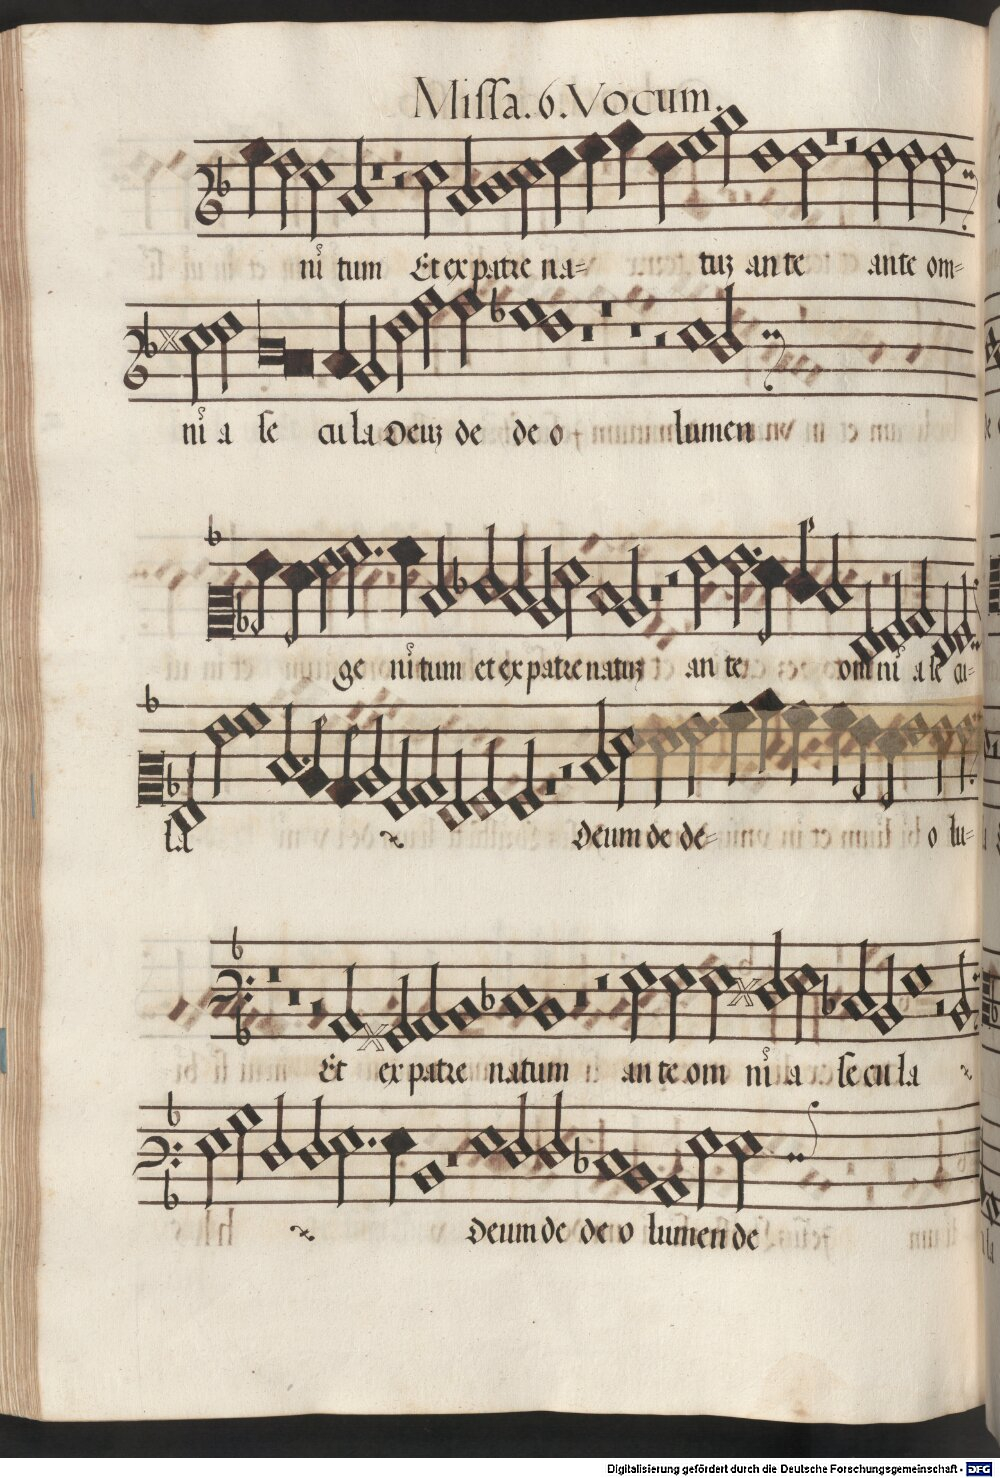 Missa. 6. Vocum.
nĩ tum Et ex patre na= tuʒ an te ante om=
nĩ a se cu la Deuʒ de de o lumen
ge nĩ tum et ex patre natuʒ an te om nĩ a se cu=
la Deum de de= o lu=
Et ex patre natum an te om nĩ a se cu la
Deum de de o lumen de
Digitalisierung gefördert durch die Deutsche Forschungsgemeinschaft - DFG